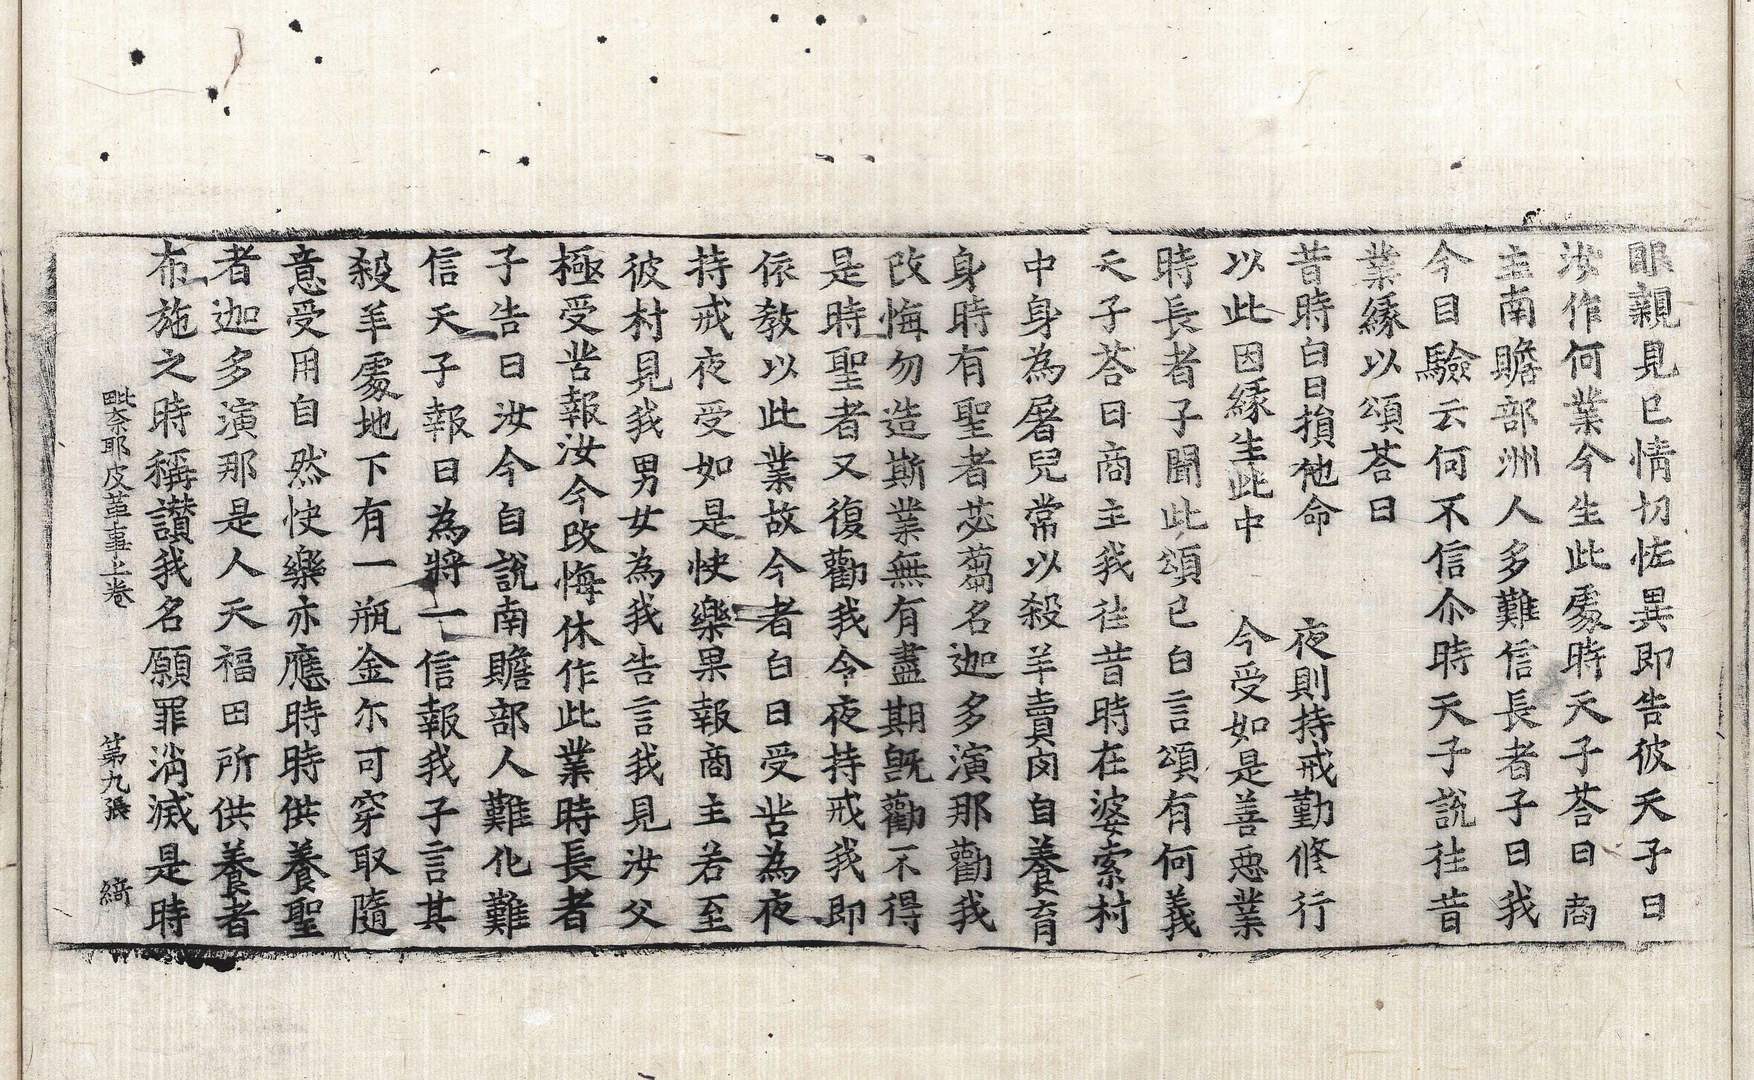 眼親見已情切恠異即告彼天子曰
汝作何業今生此處時天子荅曰商
主南贍部洲人多難信長者子曰我
今目驗云何不信尒時天子說往昔
業緣以頌荅曰
昔時白日損他命　夜則持戒勤修行
以此因緣生此中　今受如是善惡業
時長者子聞此頌已白言頌有何義
天子荅曰商主我往昔時在婆索村
中身為屠兒常以殺羊賣肉自養育
身時有聖者苾蒭名迦多演那勸我
改悔勿造斯業無有盡期旣勸不得
是時聖者又復勸我令夜持戒我即
依教以此業故今者白日受苦為夜
持戒夜受如是快樂果報商主若至
彼村見我男女為我告言我見汝父
極受苦報汝今改悔休作此業時長者
子告曰汝今自說南贍部人難化難
信天子報曰為將一信報我子言其
殺羊處地下有一瓶金尓可穿取隨
意受用自然快樂亦應時時供養聖
者迦多演那是人天福田所供養者
布施之時稱讚我名願罪消滅是時
毗奈耶皮革事上卷　第九張　綺